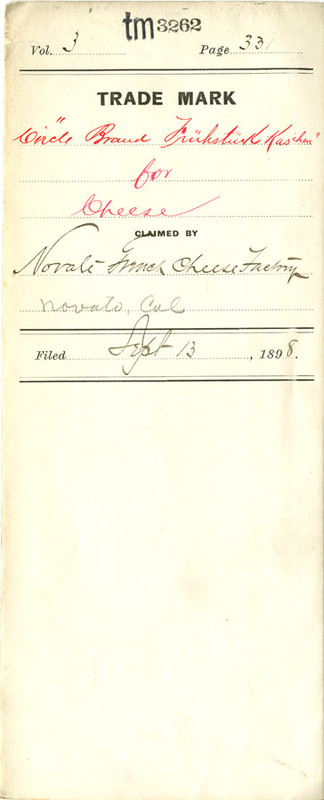 tm 3262
Vol. 3 Page 331
TRADE MARK
"Circle Brand Frühstücks Käschen"
for
Cheese
CLAIMED BY
Novato French Cheese Factory
Novato, Cal
Filed Sept 13, 1898.